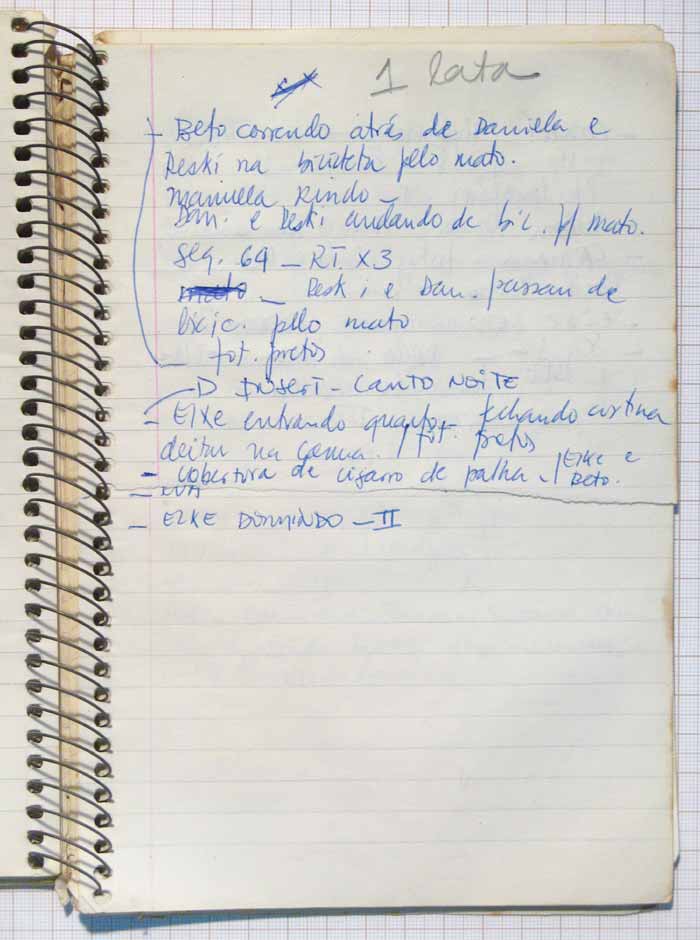 1 lata
- Beto correndo atrás de Daniela e
Deski na bicicleta pelo mato.
Manuela Rindo -
Dan. e Deski andando de bic. p/ mato.
Seq. 64 - RT. X3
- Deski e Dan. passan de
bicic. pelo mato
- fot. pretos
D INSERT - CANTO NOITE
- Elke entrando quarto - fechando cortina
deitar na cama. / fot. pretos
- cobertura de cigarro de palha - / Elke e
Beto.
- ELKE DORMINDO - II